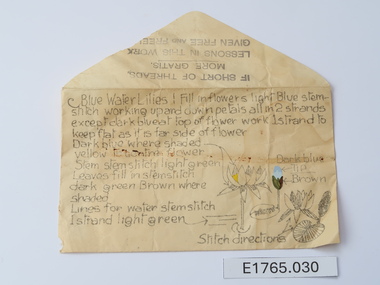 GIVEN FREE AND FREE
LESSONS IN THIS WORK
MORE GRATIS.
IF SHORT OF THREADS
Blue Water Lilies 1 Fill in flowers light Blue stem-
stitch working up and down petals all in 2 strands
except dark blue at top of flower work 1 strand to
keep flat as if is far side of flower
Dark blue where shaded
yellow flower
Stem stem stitch light green
Leaves fill in stem stitch
dark green Brown where
shaded
Lines for water stem stitch
1 strand light green
Dark blue
Brown
Stitch directions
E1765.030